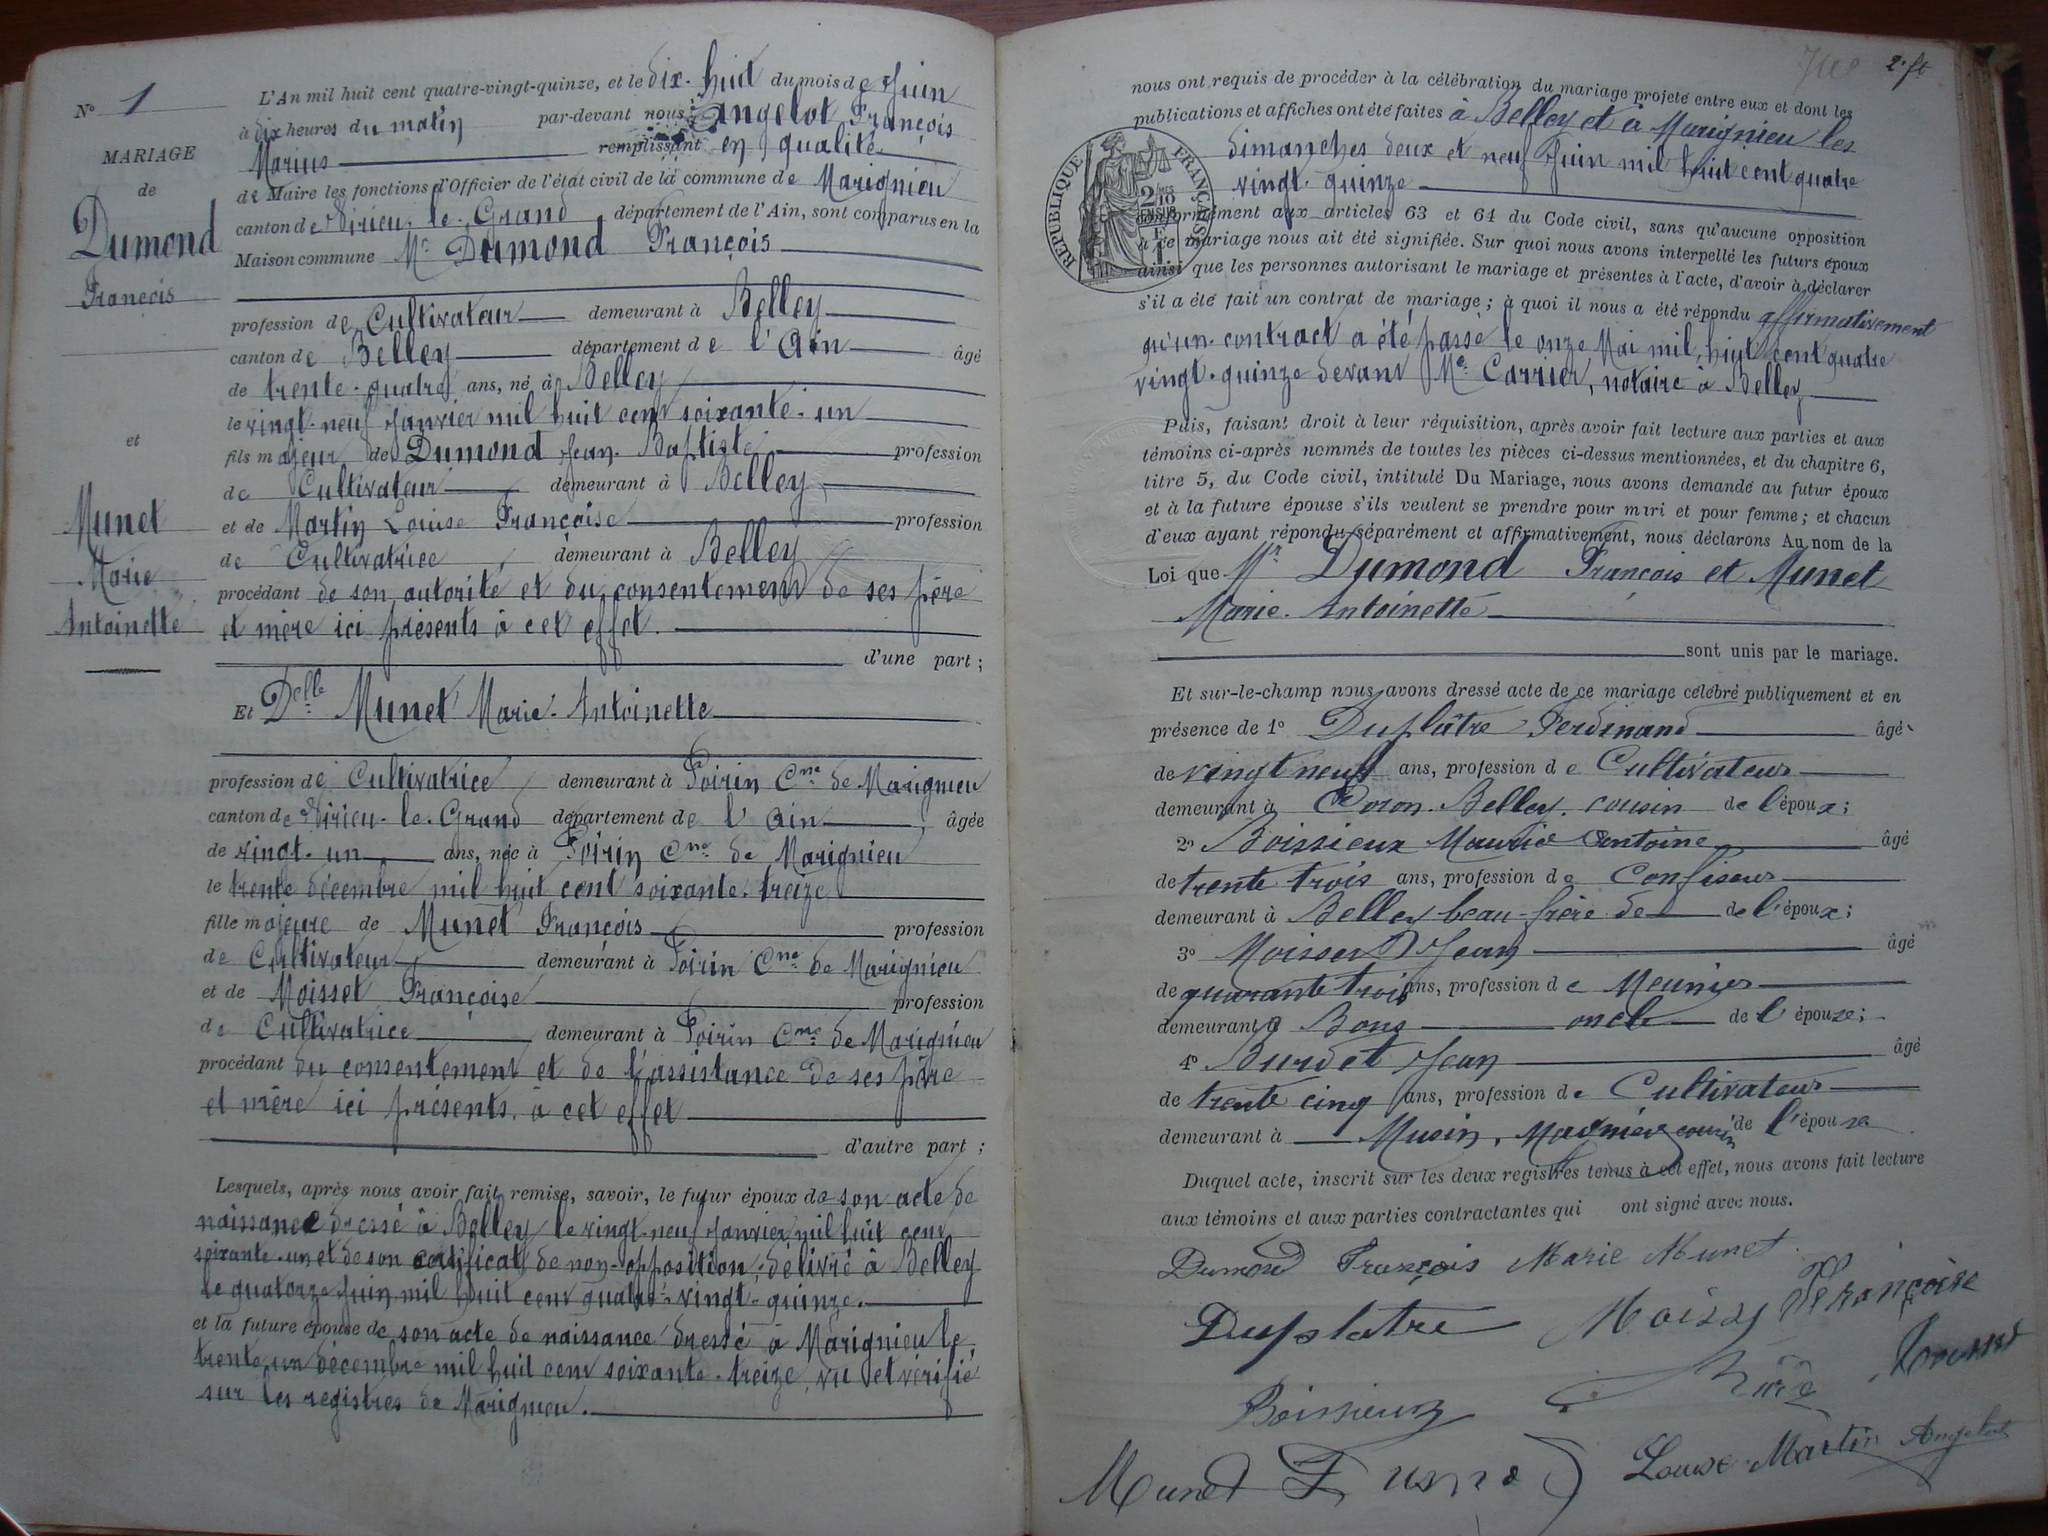 N° 1
MARIAGE
de
Dumond
François
et
Munet
Marie
Antoinette
L'An mil huit cent quatre-vingt-quinze, et le dix-huit du mois de Juin
à dix heures du matin par-devant nous Angelot François
Marius remplissant en qualité
de Maire les fonctions d'Officier de l'état civil de la commune de Marignieu
canton de Virieu-le-Grand département de l'Ain, sont comparus en la
Maison commune Mr Dumond François
profession de Cultivateur demeurant à Belley
canton de Belley département de l'Ain âgé
de trente-quatre ans, né à Belley
le vingt-neuf Janvier mil huit cent soixante-un
fils majeur de Dumond Jean-Baptiste profession
de Cultivateur demeurant à Belley
et de Martin Louise Françoise profession
de Cultivatrice demeurant à Belley
procédant de son autorité et du consentement de ses père
et mère ici présents à cet effet.
d'une part ;
Et Delle Munet Marie-Antoinette
profession de Cultivatrice demeurant à Poirin Cne de Marignieu
canton de Virieu-le-Grand département de l'Ain âgée
de vingt-un ans, née à Poirin Cne de Marignieu
le trente décembre mil huit cent soixante-treize
fille majeure de Munet François profession
de Cultivateur demeurant à Poirin Cne de Marignieu
et de Moisset Françoise profession
de Cultivatrice demeurant à Poirin Cne de Marignieu
procédant du consentement et de l'assistance de ses père
et mère ici présents à cet effet
d'autre part ;
Lesquels, après nous avoir fait remise, savoir, le futur époux de son acte de
naissance dressé à Belley le vingt-neuf Janvier mil huit cent
soixante-un et de son certificat de non-opposition, délivré à Belley
le quatorze Juin mil huit cent quatre-vingt-quinze.
et la future épouse de son acte de naissance dressé à Marignieu le
trente un décembre mil huit cent soixante-treize, vu et vérifié
sur les registres de Marignieu.
2e ft
nous ont requis de procéder à la célébration du mariage projeté entre eux et dont les
publications et affiches ont été faites à Belley et à Marignieu les
dimanches deux et neuf Juin mil huit cent quatre
vingt-quinze
RÉPUBLIQUE FRANÇAISE
2/10 EN SUS
conformément aux articles 63 et 64 du Code civil, sans qu'aucune opposition
à ce mariage nous ait été signifiée. Sur quoi nous avons interpellé les futurs époux
ainsi que les personnes autorisant le mariage et présentes à l'acte, d'avoir à déclarer
s'il a été fait un contrat de mariage ; à quoi il nous a été répondu affirmativement
qu'un contract a été passé le onze Mai mil huit cent quatre
vingt-quinze devant Me Carrier, notaire à Belley
Puis, faisant droit à leur réquisition, après avoir fait lecture aux parties et aux
témoins ci-après nommés de toutes les pièces ci-dessus mentionnées, et du chapitre 6,
titre 5, du Code civil, intitulé Du Mariage, nous avons demandé au futur époux
et à la future épouse s'ils veulent se prendre pour mari et pour femme ; et chacun
d'eux ayant répondu séparément et affirmativement, nous déclarons Au nom de la
Loi que Mr Dumond François et Munet
Marie-Antoinette
sont unis par le mariage.
Et sur-le-champ nous avons dressé acte de ce mariage célébré publiquement et en
présence de 1° Duplâtre Ferdinand âgé
de vingt neuf ans, profession de Cultivateur
demeurant à Coron-Belley, cousin de l'époux ;
2° Boissieux Maurice Antoine âgé
de trente trois ans, profession de Confiseur
demeurant à Belley beau-frère de de l'époux ;
3° Moisset Jean âgé
de quarante trois ans, profession de Meunier
demeurant à Bons oncle de l'épouse ;
4° Burdet Jean âgé
de trente cinq ans, profession de Cultivateur
demeurant à Musin, cousin de l'épouse
Duquel acte, inscrit sur les deux registres tenus à cet effet, nous avons fait lecture
aux témoins et aux parties contractantes qui ont signé avec nous.
Dumond François Marie Munet
Duplatre Françoise
Boissieux
Munet Louise Martin Angelot